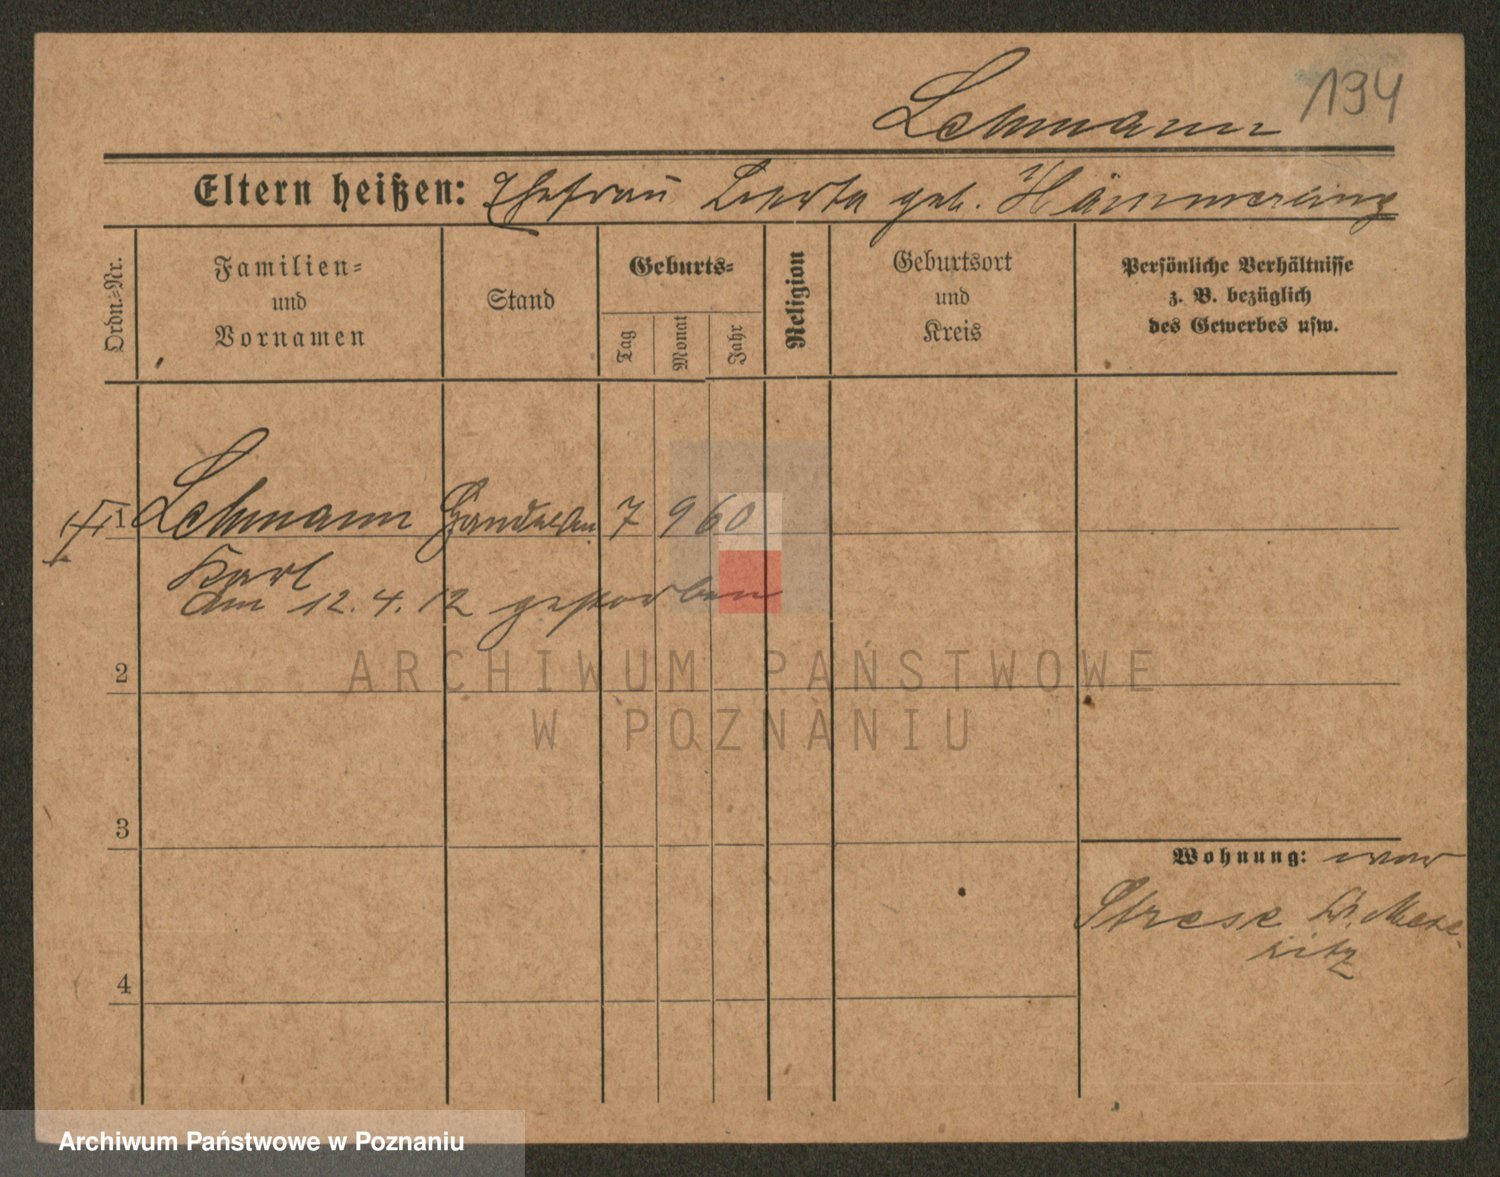 Lehmann 134
Eltern heißen: Ehefrau Berta geb. Hämmerling
Ordn.=Nr.
Familien=
und
Vornamen
Stand
Geburts=
Tag
Monat
Jahr
Religion
Geburtsort
und
Kreis
Persönliche Verhältnisse
z. B. bezüglich
des Gewerbes usw.
1 Lehmann 7 9 60
Karl
Am 12.4.12 gestorben
2
ARCHIWUM PAŃSTWOWE
W POZNANIU
3
Wohnung:
Strese Kr. Mese-
ritz
4
Archiwum Państwowe w Poznaniu